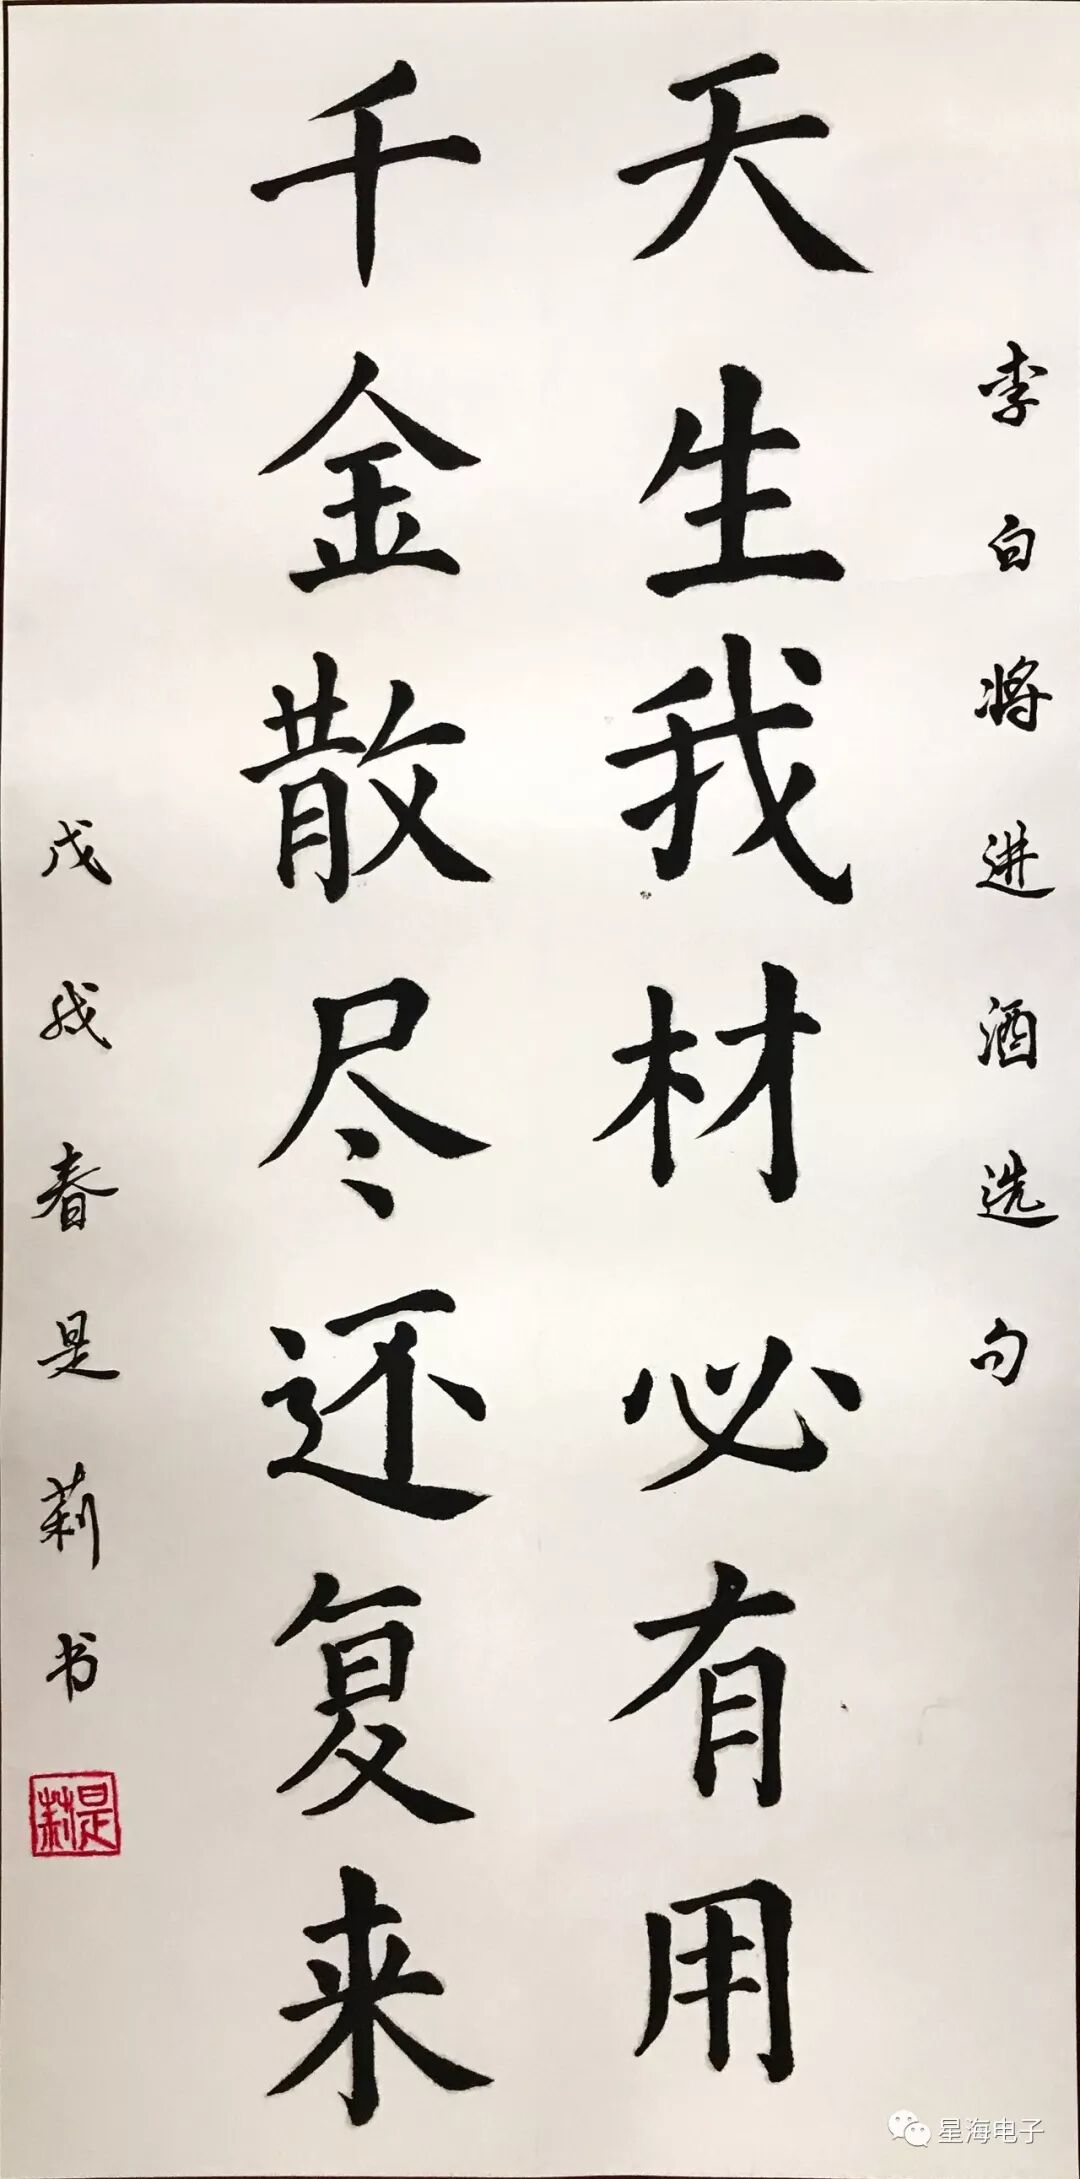 李白将进酒选句
天生我材必有用
千金散尽还复来
戊戌春是莉书
是莉
星海电子